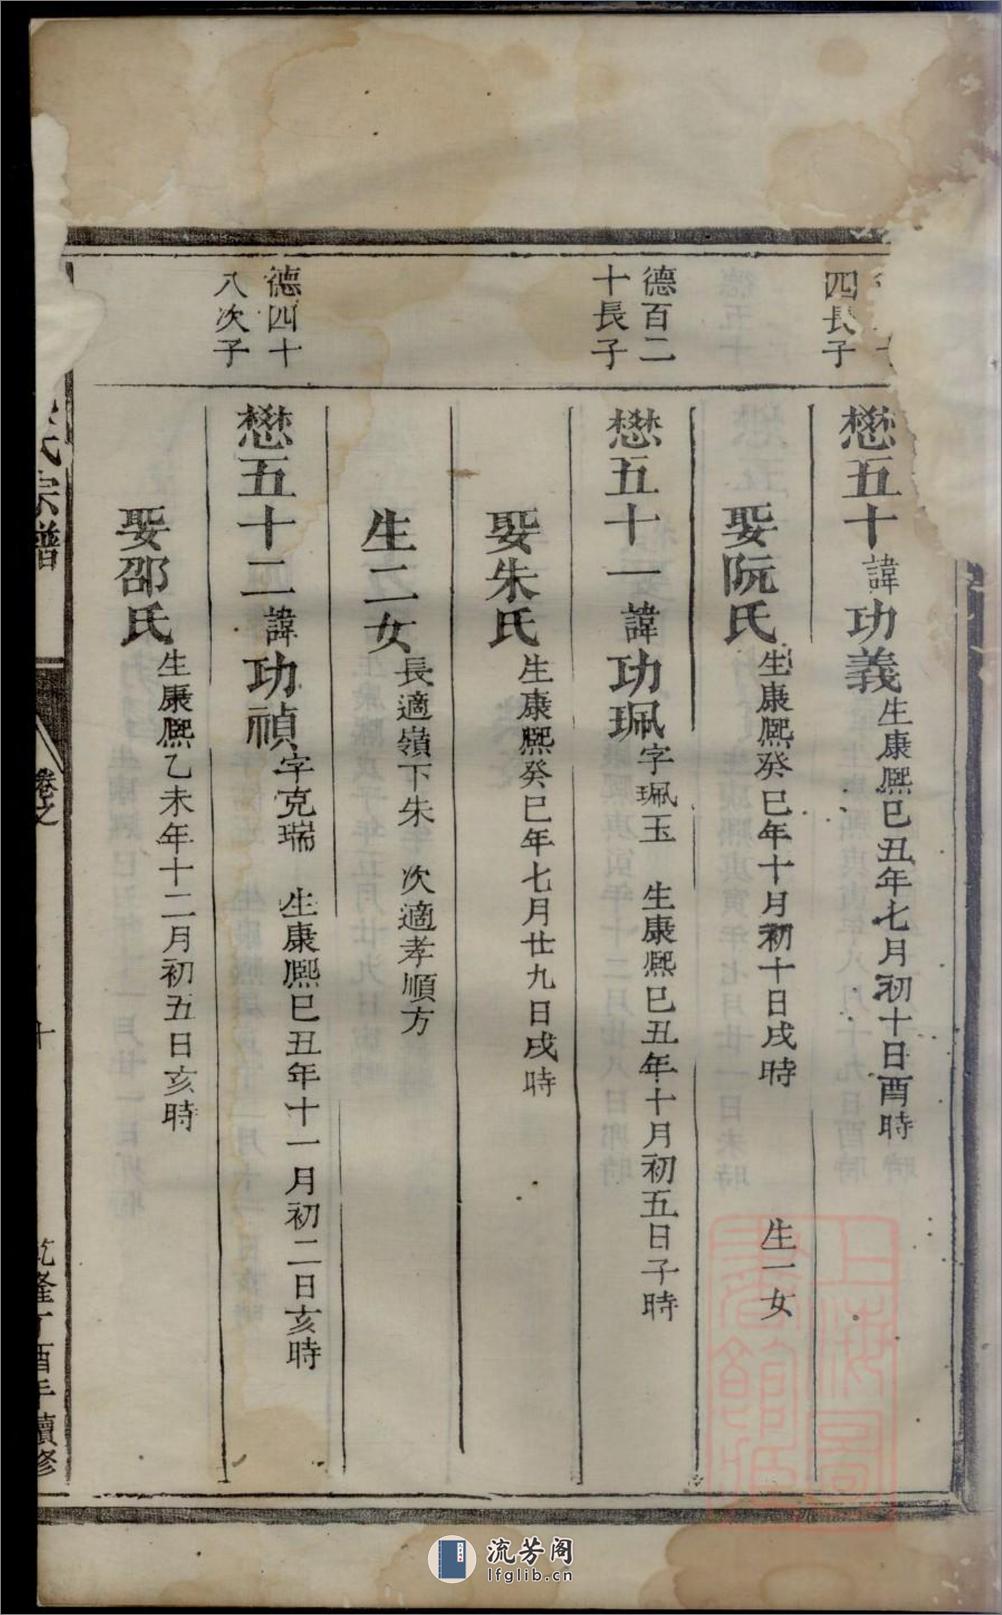 四長子
懋五十諱功義生康熙己丑年七月初十日酉時
娶阮氏生康熙癸巳年十月初十日戌時 生一女
德百二
十長子
懋五十一諱功珮字珮玉 生康熙己丑年十月初五日子時
娶朱氏生康熙癸巳年七月廿九日戌時
生二女長適嶺下朱 次適孝順方
德四十
八次子
懋五十二諱功禎字克瑞 生康熙己丑年十一月初二日亥時
娶邵氏生康熙乙未年十二月初五日亥時
氏宗譜
卷之
十
乾隆丁酉年續修
上海圖書館藏
流芳阁
lfglib.cn